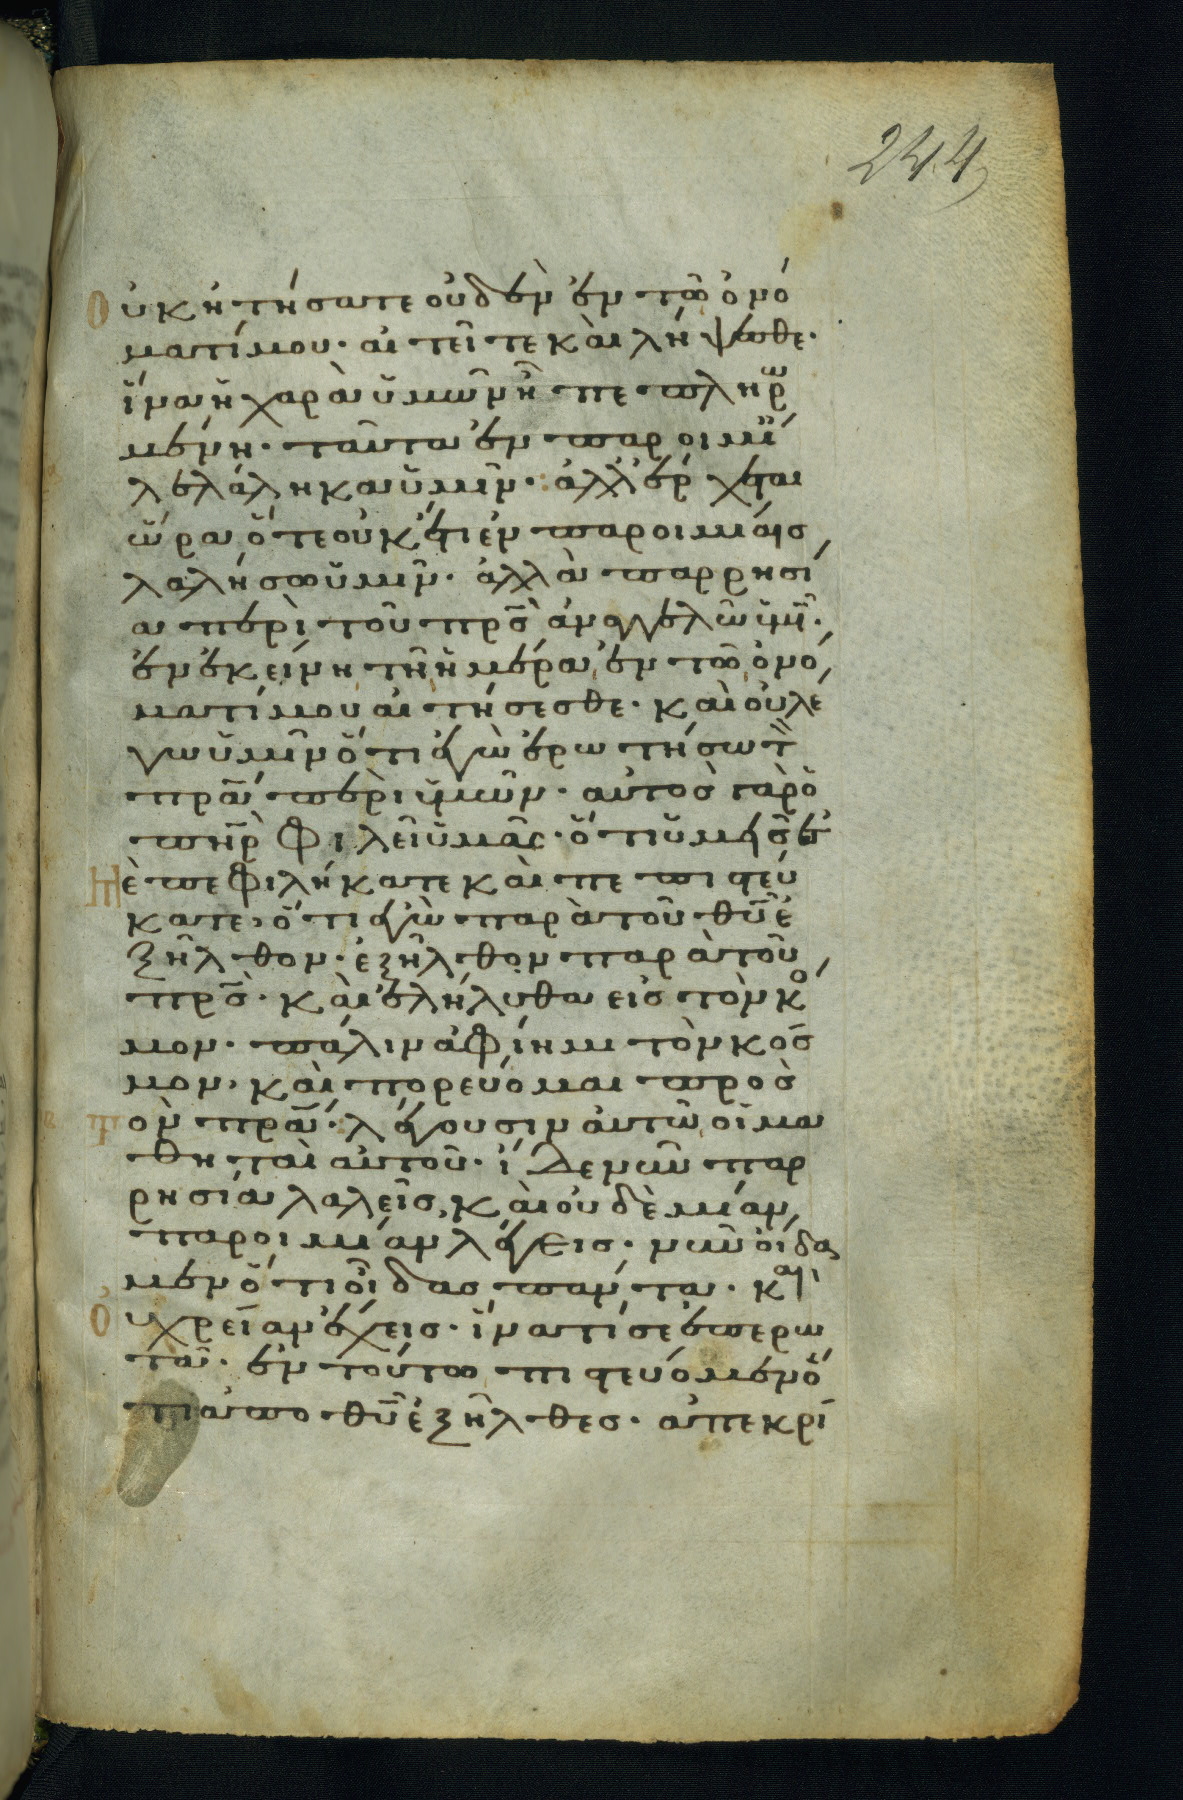 244
Οὐκ ἠτήσατε οὐδὲν ἐν τῶ ὀνό
ματί μου· αἰτεῖτε καὶ λήψεσθε·
ἵνα ἡ χαρὰ ὑμῶν ἦ πεπληρω
μένη· ταῦτα ἐν παροιμί
λελάληκα ὑμῖν· ἀλλ' ἔρχεται
ὥρα ὅτε οὐκέτι ἐν παροιμίαις
λαλήσω ὑμῖν· ἀλλὰ παρρησί
α περὶ τοῦ πρ̅ς ἀναγγελῶ ὑμῖ·
ἐν ἐκείνη τῆ ἡμέρα ἐν τῶ ὀνό
ματί μου αἰτήσεσθε· καὶ οὐ λέ
γω ὑμῖν ὅτι ἐγὼ ἐρωτήσω τὸ
πρ̅α περὶ ὑμῶν· αὐτὸς γὰρ ὁ
πη̅ρ φιλεῖ ὑμᾶς· ὅτι ὑμεῖς ἐ
ἐπεφιλήκατε καὶ πεπιστεύ
κατε, ὅτι ἐγὼ παρὰ τοῦ θυ̅ ἐ
ξῆλθον· ἐξῆλθον παρὰ τοῦ
πρ̅ς· καὶ ἐλήλυθα εἰς τὸν κό
μον· πάλιν ἀφίημι τὸν κόσ
μον, καὶ πορεύομαι πρὸς
τὸν πρ̅α· λέγουσιν αὐτῶ οἱ μα
θηταὶ αὐτοῦ· ἴδε νῦν παρ
ρησία λαλεῖς, καὶ οὐδὲ μίαν
παροιμίαν λέγεις· νῦν οἴδα
μεν ὅτι οἶδας πάντα· καὶ
Οὐ χρείαν ἔχεις· ἵνα τί σε ἐπερω
τᾶ· ἐν τούτω πιστεύομεν ὅ
τι ἀπο θυ̅ ἐξῆλθες· ἀπεκρί